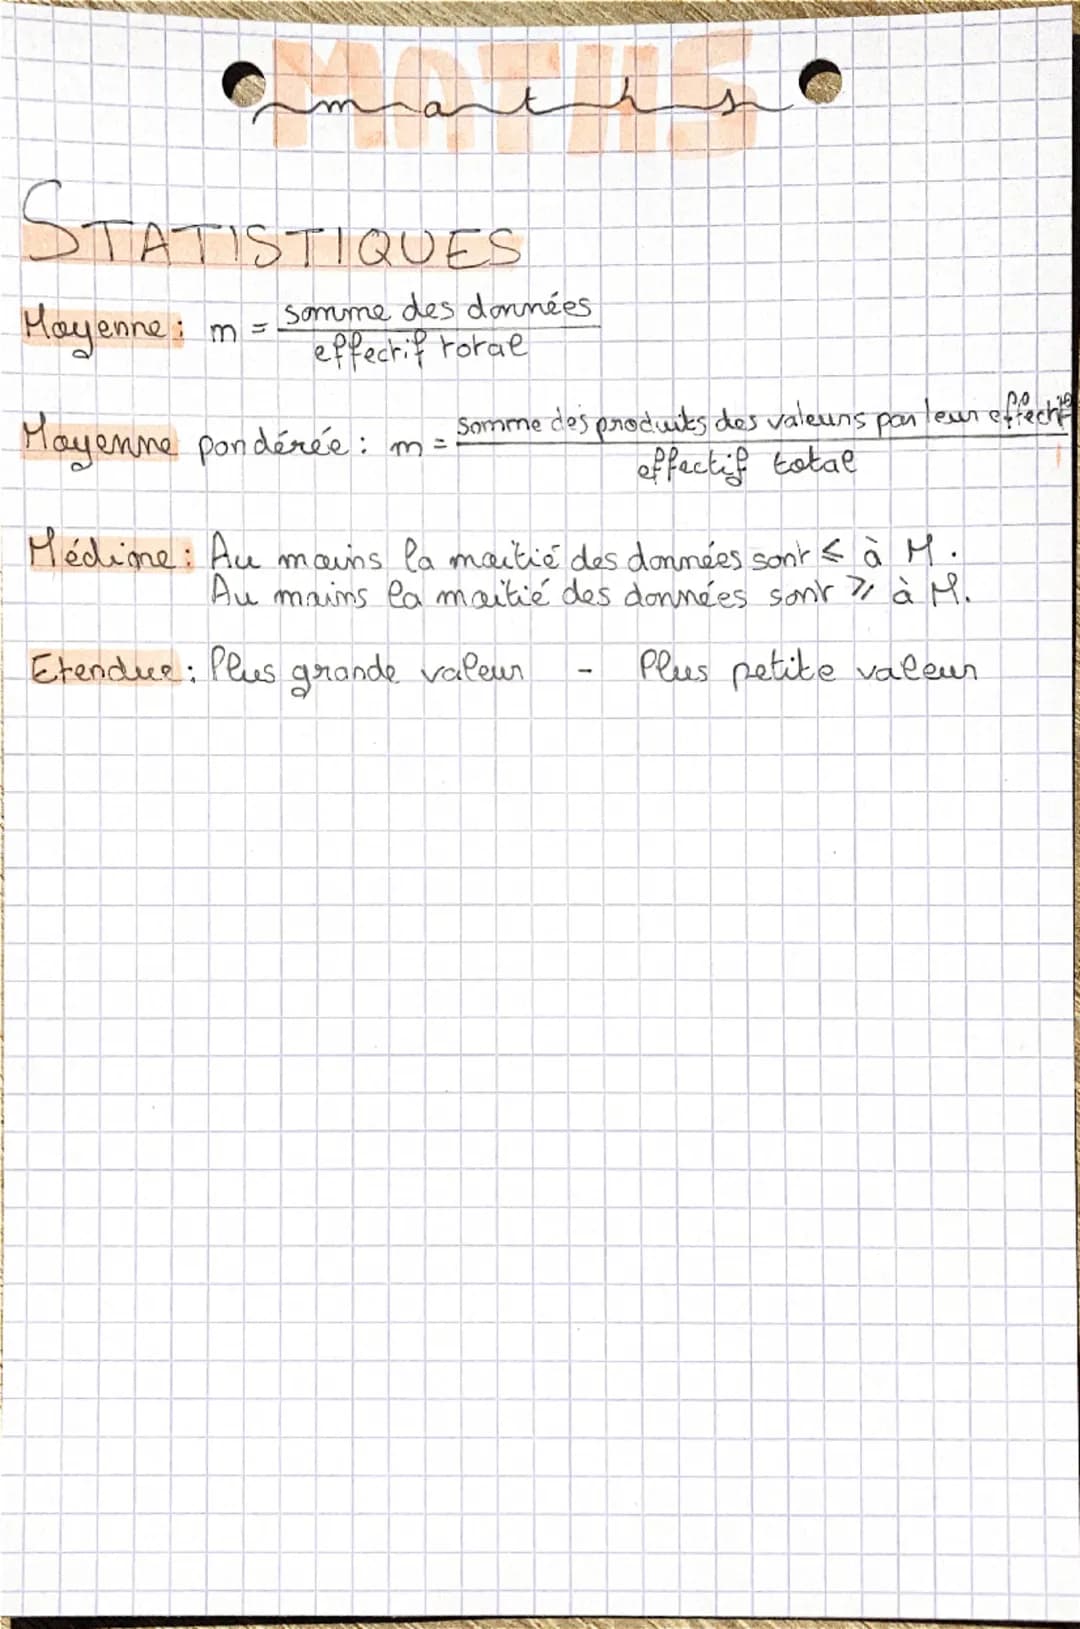 MATHS
maths
STATISTIQUES
Moyenne : m = somme des données
effectif total
Moyenne pondérée : m = Somme des produits des valeurs par leur effectif
effectif total
Médiane : Au moins la moitié des données sont ⩽ à M.
Au moins la moitié des données sont ⩾ à M.
Etendue : Plus grande valeur - Plus petite valeur